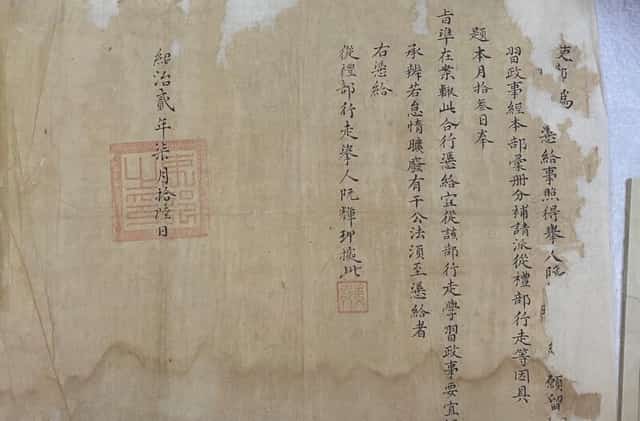 吏部為
憑給事照得舉人阮 願留
習政事經本部彙冊分補請派從禮部行走等因具
題本月拾叄日奉
旨準在案輒此合行憑給宜從該部行走學習政事要宜
承辦若怠惰曠廢有干公法須至憑給者
右憑給
從禮部行走舉人阮輝 據此
紹治貳年柒月拾陸日